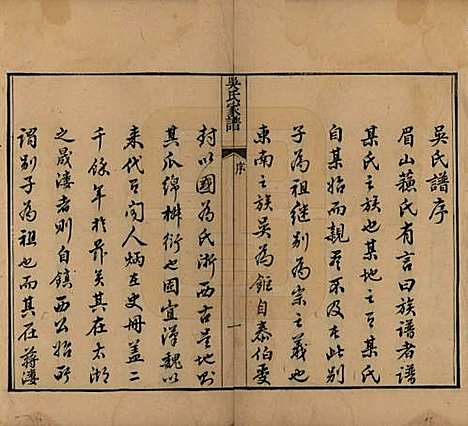 吳氏譜序
眉山蘓氏有言曰族譜者譜
某氏之族也某地之有某氏
自某始而親盡不及在此別
子為祖継別為宗之義也
東南之族吳為鉅自泰伯受
吳氏家譜
序
一
封以國為氏浙西古吳地則
其瓜綿椒衍也固宜漢魏以
来代有聞人炳在史冊蓋二
千餘年於茲矣其在太湖
之晟漊者則自鎮西公始所
謂別子為祖也而其在蔣漊